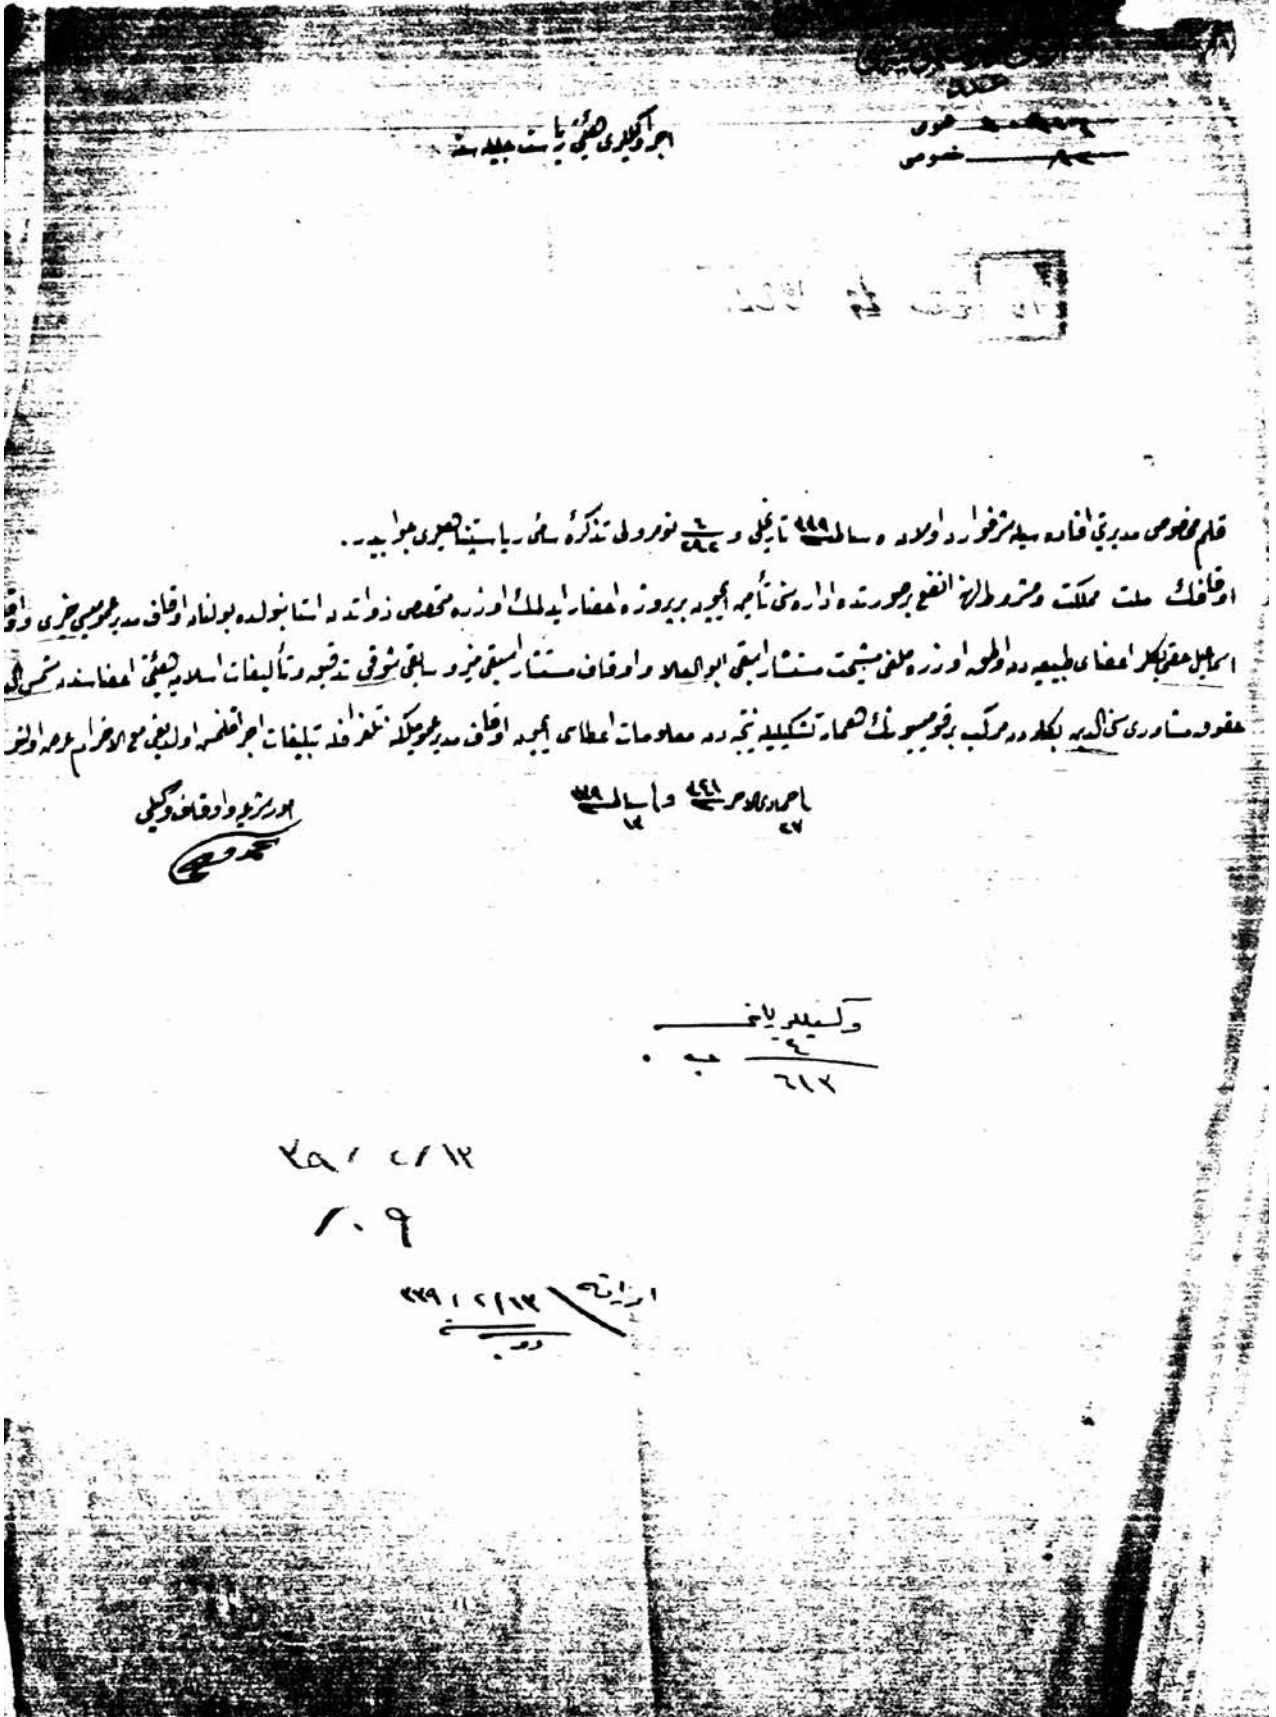 عدد
عمومی
خصوصی
اجرا وکیللری هیئتی ریاست جلیله سنه
قلم مخصوص مدیریتی افاده سیله شرفوارد اولان ٥ شباط ٣٣٩ تاریخلی و ٤/٢٩٢ نومرولی تذکرهٔ سامئ ریاستپناهیلری جوابیدر.
اوقافك ملت مملکت و مشروط لهه انفع بر صورتده اداره سنی تأمین ایچون بر پروژه احضار ایدلمك اوزره متخصص ذواتدن استانبولده بولنان اوقاف مدیر عمومیسی خیری
اسماعیل حقی بکلر اعضای طبیعیه دن اولمق اوزره ملغی مشیخت مستشار اسبقی ابوالعلا و اوقاف مستشار اسبقی منیر و سابقی شوقی تدقیق و تألیفات اسلامیه هیئتی اعضاسندن شمس الدین
حقوق مشاوری الدین بکلردن مرکب بر قومیسیونك همان تشکیلیله نتیجه دن معلومات اعطاسی ایچون اوقاف مدیر عمومیلکنه تلغرافله تبلیغات اجرا قلنمش اولدیغی مع الاحترام عرض اولنور
٢٧ جمادی الآخر ٣٤١ و ١٣ شباط ٣٣٩
امور شرعیه و اوقاف وکیلی
محمد وهبی
٤
٦١٣
٣٩ / ٢ / ١٣
١٠٩
٣٣٩ / ٢ / ١٣